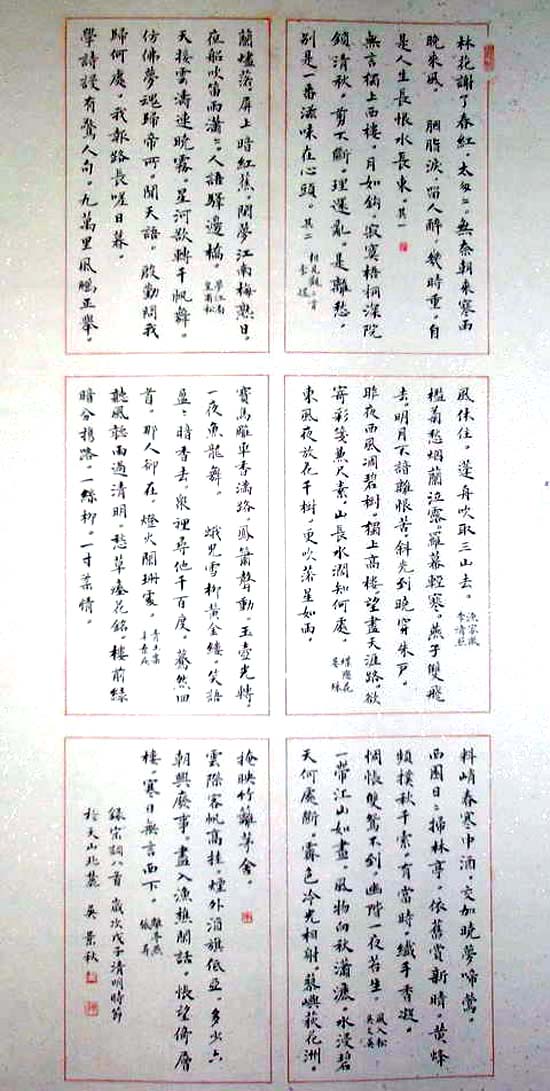 林花謝了春紅，太匆〻。無奈朝來寒雨
晚來風。　胭脂淚，留人醉，幾時重。自
是人生長恨水長東。其一
無言獨上西樓，月如鉤。寂寞梧桐深院
鎖清秋。剪不斷，理還亂，是離愁，
別是一番滋味在心頭。其二 相見歡二首 李煜
蘭燼落，屏上暗紅蕉。閑夢江南梅熟日，
夜船吹笛雨瀟〻。人語驛邊橋。夢江南 皇甫松
天接雲濤連曉霧。星河欲轉千帆舞。
仿佛夢魂歸帝所。聞天語。殷勤問我
歸何處。我報路長嗟日暮。
學詩謾有驚人句。九萬里風鵬正舉。
風休住。蓬舟吹取三山去。漁家傲 李清照
檻菊愁烟蘭泣露。羅幕輕寒，燕子雙飛
去。明月不諳離恨苦。斜光到曉穿朱戶。
昨夜西風凋碧樹。獨上高樓，望盡天涯路。欲
寄彩箋兼尺素。山長水闊知何處。蝶戀花 晏殊
東風夜放花千樹。更吹落星如雨。
寶馬雕車香滿路。鳳簫聲動，玉壺光轉，
一夜魚龍舞。　蛾兒雪柳黃金縷。笑語
盈〻暗香去。衆裡尋他千百度。驀然回
首，那人卻在，燈火闌珊處。青玉案 辛棄疾
聽風聽雨過清明。愁草瘞花銘。樓前綠
暗分携路，一絲柳，一寸柔情。
料峭春寒中酒，交加曉夢啼鶯。
西園日〻掃林亭。依舊賞新晴。黃蜂
頻撲秋千索，有當時，纖手香凝。
惆悵雙鴛不到，幽階一夜苔生。風入松 吳文英
一帶江山如畫，風物向秋瀟灑。水浸碧
天何處斷，霽色冷光相射。蓼嶼荻花洲，
掩映竹籬茅舍。
雲際客帆高挂，煙外酒旗低亞。多少六
朝興廢事，盡入漁樵閑話。悵望倚層
樓，寒日無言西下。離亭燕 張昇
錄宋詞八首 歲次戊子清明時節
於天山北麓 吳景秋